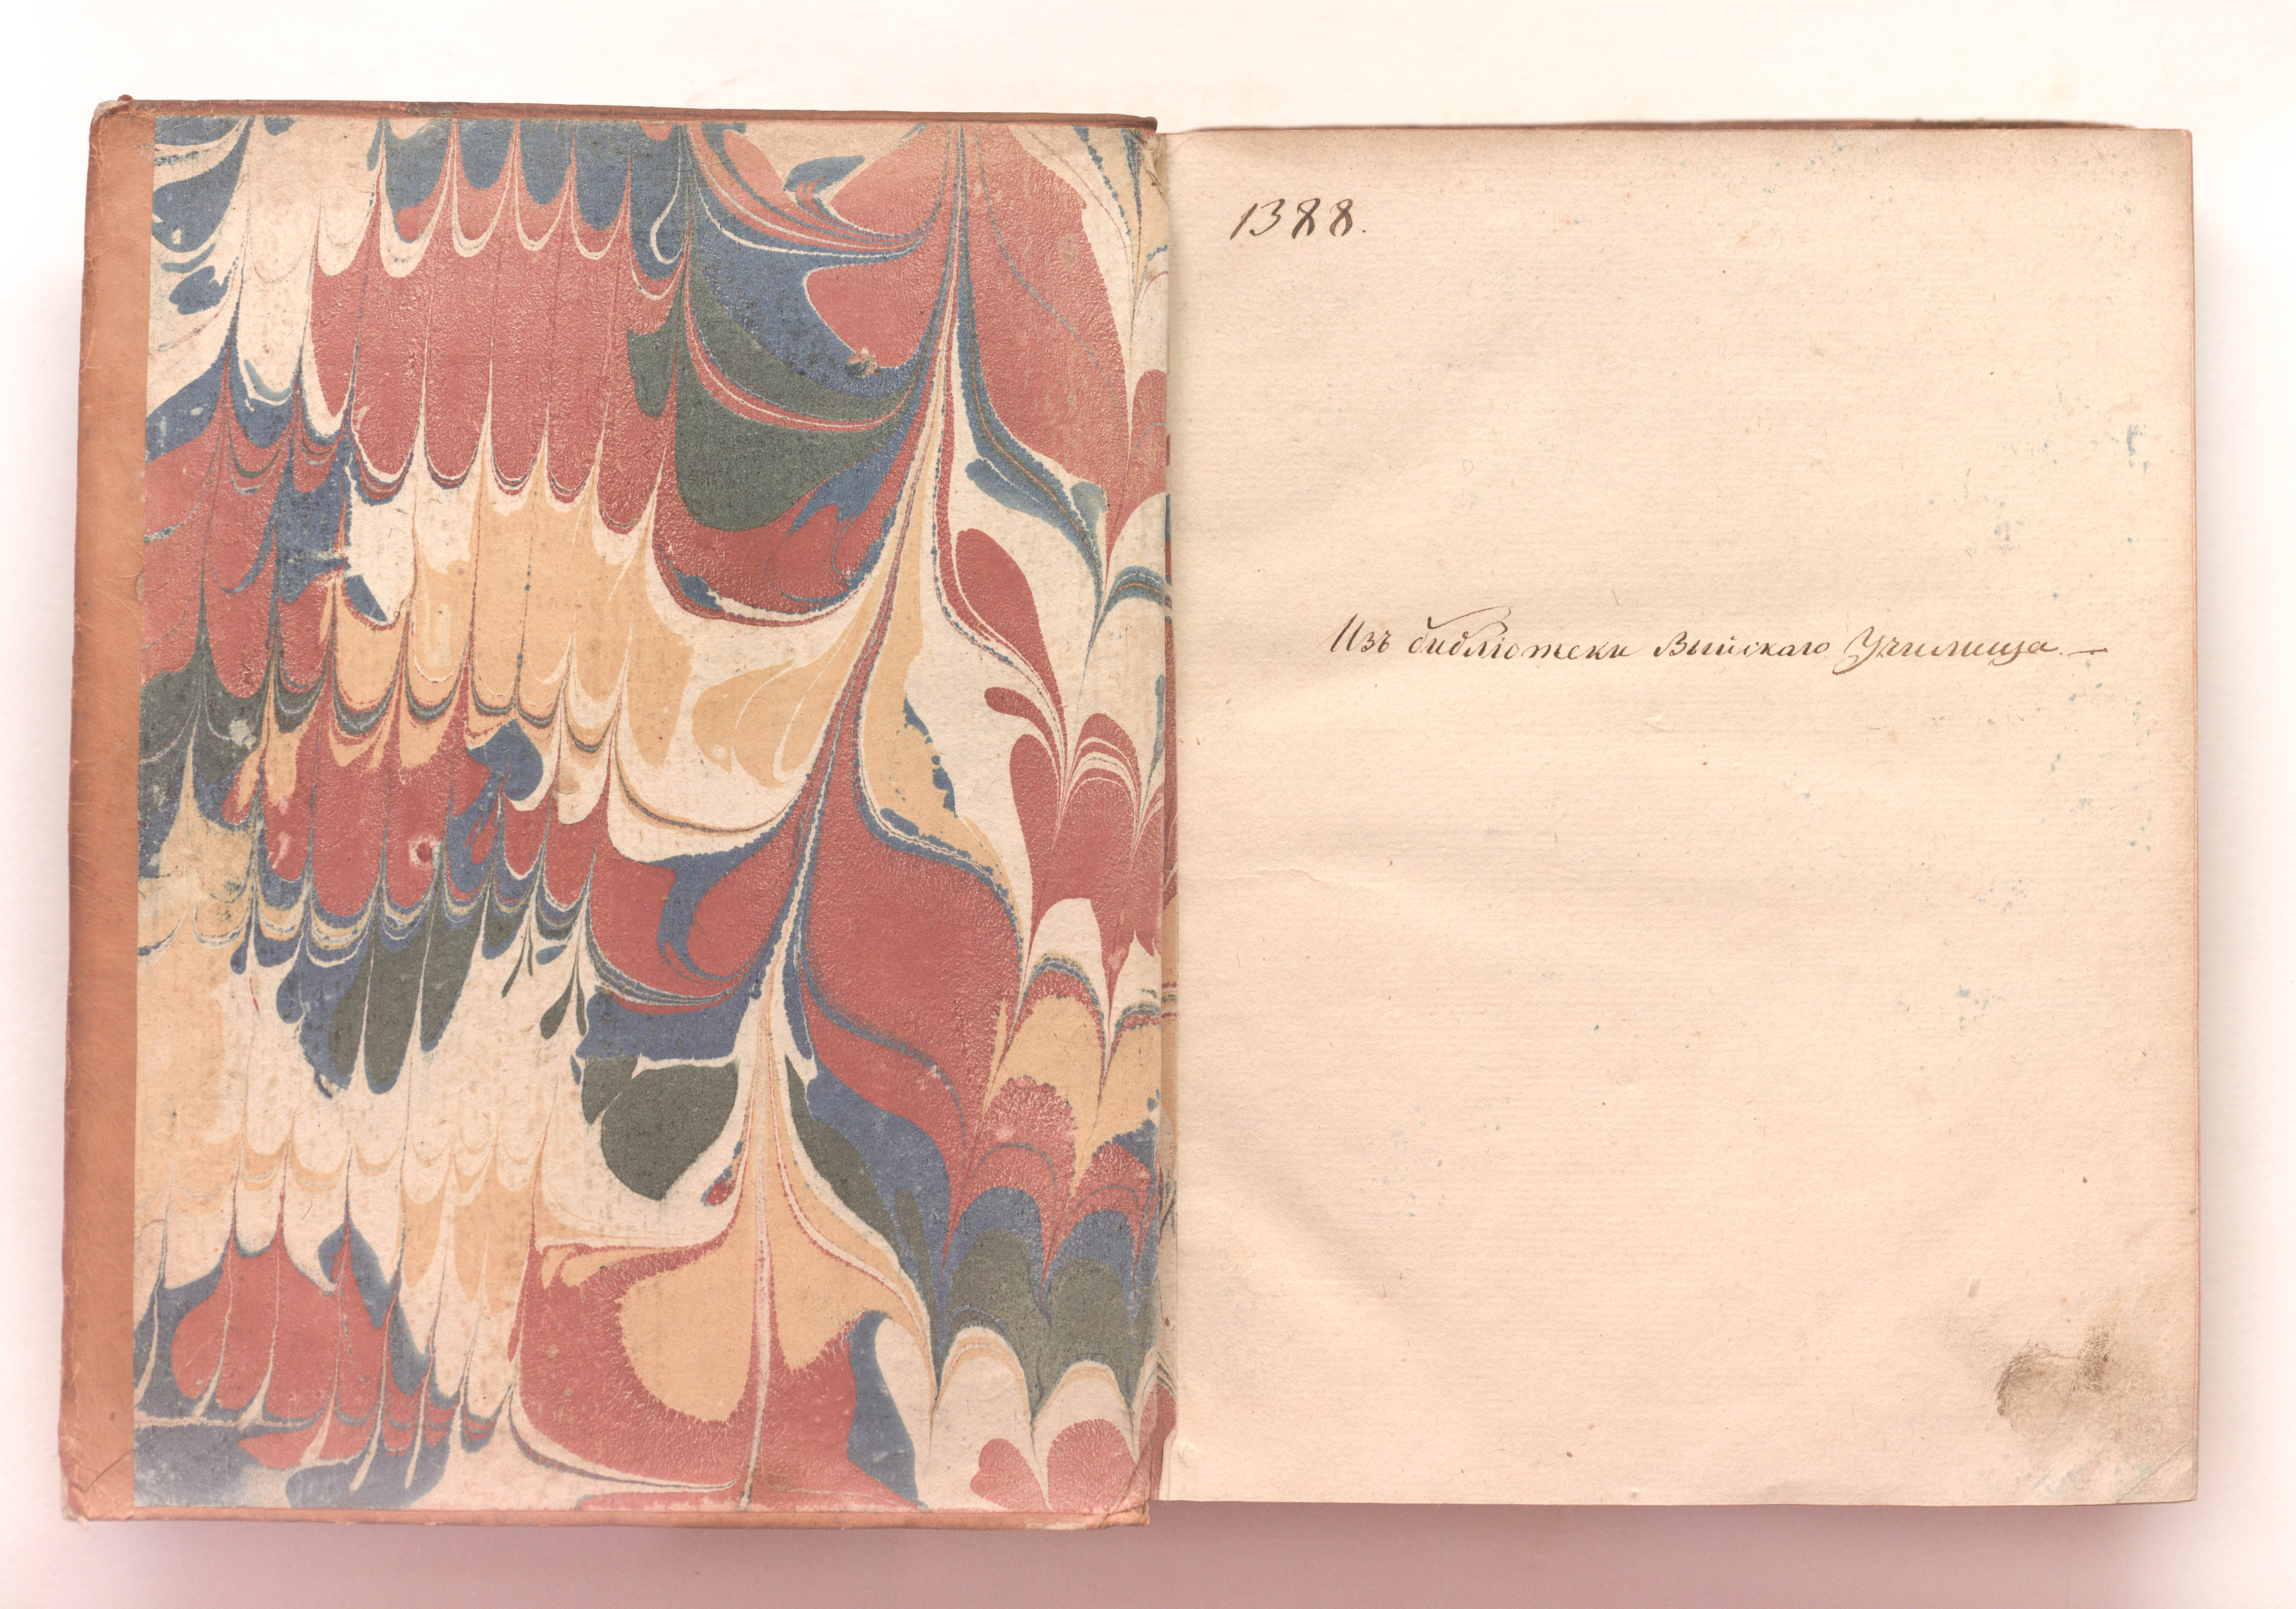 1388.
Изъ библіотеки Выйскаго Училища. —